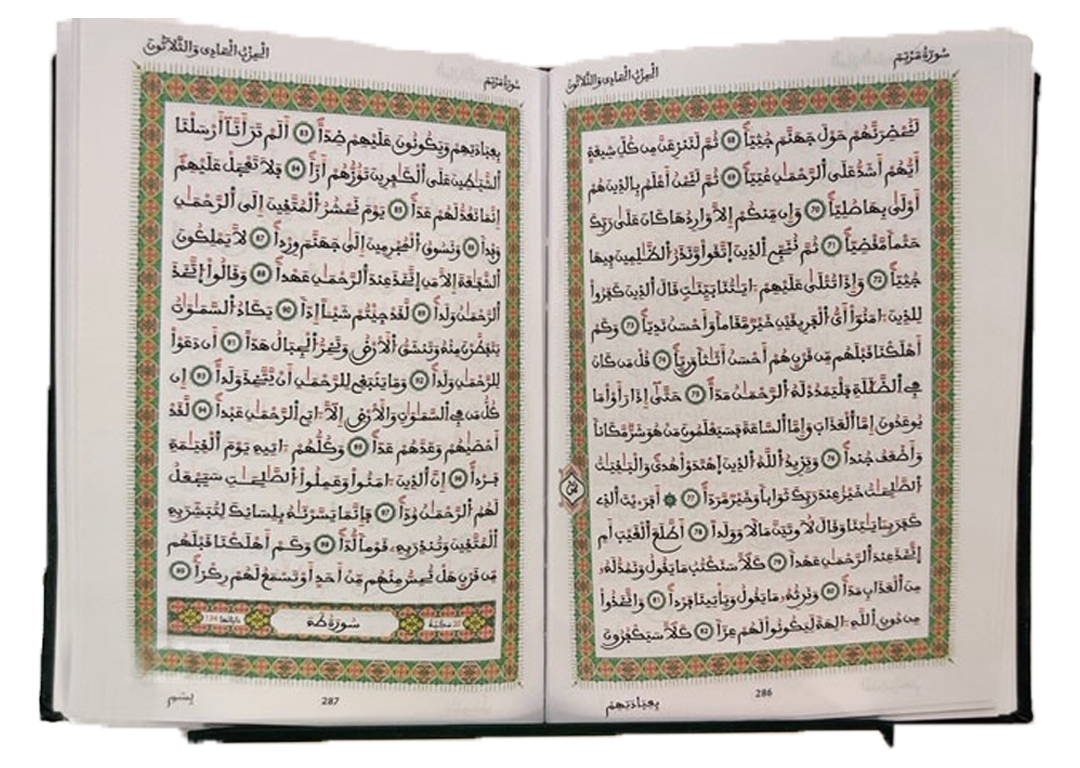 سُورَةُ مَرْيَمَ
الْحِزْبُ الْحَادِي وَالثَّلَاثُونَ
لَنُحْضِرَنَّهُمْ حَوْلَ جَهَنَّمَ جُثِيّاً 68 ثُمَّ لَنَنزِعَنَّ مِن كُلِّ شِيعَةٍ
أَيُّهُمْ أَشَدُّ عَلَى الرَّحْمَٰنِ عُتِيّاً 69 ثُمَّ لَنَحْنُ أَعْلَمُ بِالذِينَ هُمْ
أَوْلَىٰ بِهَا صُلِيّاً 70 وَإِن مِّنكُمْ إِلَّا وَارِدُهَا كَانَ عَلَىٰ رَبِّكَ
حَتْماً مَّقْضِيّاً 71 ثُمَّ نُنَجِّي الذِينَ اتَّقَوا وَّنَذَرُ الظَّٰلِمِينَ فِيهَا
جُثِيّاً 72 وَإِذَا تُتْلَىٰ عَلَيْهِمْ ءَايَٰتُنَا بَيِّنَٰتٍ قَالَ الذِينَ كَفَرُواْ
لِلذِينَ ءَامَنُواْ أَيُّ الْفَرِيقَيْنِ خَيْرٌ مَّقَاماً وَأَحْسَنُ نَدِيّاً 73 وَكَمْ
أَهْلَكْنَا قَبْلَهُم مِّن قَرْنٍ هُمْ أَحْسَنُ أَثَٰثاً وَرِءْياً 74 قُلْ مَن كَانَ
فِي الضَّلَٰلَةِ فَلْيَمْدُدْ لَهُ الرَّحْمَٰنُ مَدّاً 75 حَتَّىٰ إِذَا رَأَوْاْ مَا
يُوعَدُونَ إِمَّا الْعَذَابَ وَإِمَّا السَّاعَةَ فَسَيَعْلَمُونَ مَنْ هُوَ شَرٌّ مَّكَاناً
وَأَضْعَفُ جُنداً 76 وَيَزِيدُ اللَّهُ الذِينَ اهْتَدَوْاْ هُدىً وَالْبَٰقِيَٰتُ
الصَّٰلِحَٰتُ خَيْرٌ عِندَ رَبِّكَ ثَوَاباً وَخَيْرٌ مَّرَدّاً 77 أَفَرَٰيْتَ الَّذِي
كَفَرَ بِـَٔايَٰتِنَا وَقَالَ لَأُوتَيَنَّ مَالاً وَوَلَداً 78 أَطَّلَعَ الْغَيْبَ أَمِ
اتَّخَذَ عِندَ الرَّحْمَٰنِ عَهْداً 79 كَلَّا سَنَكْتُبُ مَا يَقُولُ وَنَمُدُّ لَهُ
مِنَ الْعَذَابِ مَدّاً 80 وَنَرِثُهُ مَا يَقُولُ وَيَأْتِينَا فَرْداً 81 وَاتَّخَذُواْ
مِن دُونِ اللَّهِ ءَالِهَةً لِّيَكُونُواْ لَهُمْ عِزّاً 82 كَلَّا سَيَكْفُرُونَ
ثمن
286
بِعِبَادَتِهِمْ
سُورَةُ مَرْيَمَ
الْحِزْبُ الْحَادِي وَالثَّلَاثُونَ
بِعِبَادَتِهِمْ وَيَكُونُونَ عَلَيْهِمْ ضِدّاً 83 أَلَمْ تَرَ أَنَّا أَرْسَلْنَا
الشَّيَٰطِينَ عَلَى الْكَٰفِرِينَ تَؤُزُّهُمْ أَزّاً 84 فَلَا تَعْجَلْ عَلَيْهِمْ
إِنَّمَا نَعُدُّ لَهُمْ عَدّاً 85 يَوْمَ نَحْشُرُ الْمُتَّقِينَ إِلَى الرَّحْمَٰنِ
وَفْداً 86 وَنَسُوقُ الْمُجْرِمِينَ إِلَىٰ جَهَنَّمَ وِرْداً 87 لَّا يَمْلِكُونَ
الشَّفَٰعَةَ إِلَّا مَنِ اتَّخَذَ عِندَ الرَّحْمَٰنِ عَهْداً 88 وَقَالُواْ اتَّخَذَ
الرَّحْمَٰنُ وَلَداً 89 لَّقَدْ جِئْتُمْ شَيْـاً إِدّاً 90 يَكَادُ السَّمَٰوَٰتُ
يَتَفَطَّرْنَ مِنْهُ وَتَنشَقُّ الْأَرْضُ وَتَخِرُّ الْجِبَالُ هَدّاً 91 أَن دَعَوْاْ
لِلرَّحْمَٰنِ وَلَداً 92 وَمَا يَنۢبَغِي لِلرَّحْمَٰنِ أَنْ يَّتَّخِذَ وَلَداً 93 إِن
كُلُّ مَن فِي السَّمَٰوَٰتِ وَالْأَرْضِ إِلَّا ءَاتِي الرَّحْمَٰنِ عَبْداً 94 لَّقَدْ
أَحْصَيٰهُمْ وَعَدَّهُمْ عَدّاً 95 وَكُلُّهُمْ ءَاتِيهِ يَوْمَ الْقِيَٰمَةِ
فَرْداً 96 إِنَّ الذِينَ ءَامَنُواْ وَعَمِلُواْ الصَّٰلِحَٰتِ سَيَجْعَلُ
لَهُمُ الرَّحْمَٰنُ وُدّاً 97 فَإِنَّمَا يَسَّرْنَٰهُ بِلِسَانِكَ لِتُبَشِّرَ بِهِ
الْمُتَّقِينَ وَتُنذِرَ بِهِ قَوْماً لُّدّاً 98 وَكَمْ أَهْلَكْنَا قَبْلَهُم
مِّن قَرْنٍ هَلْ تُحِسُّ مِنْهُم مِّنْ أَحَدٍ أَوْ تَسْمَعُ لَهُمْ رِكْزاً 99
20 مكية سُورَةُ طَهَ وآياتها 134
287
بِسْمِ